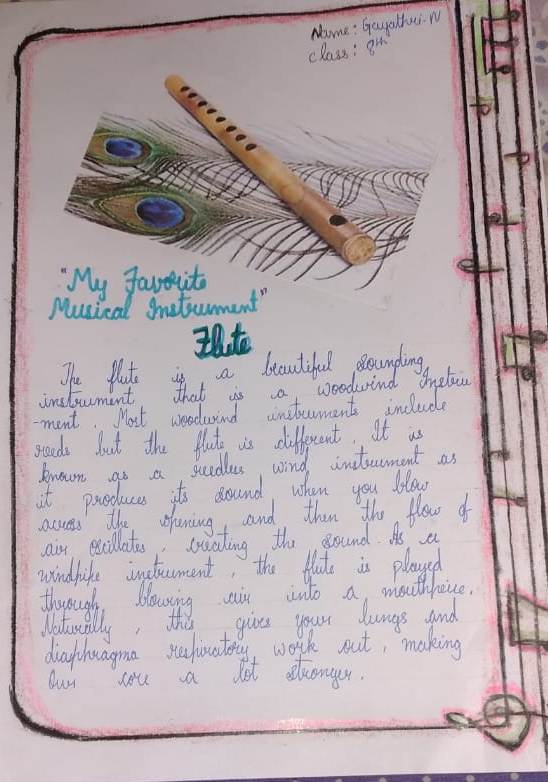 Name: Gayathri.N
Class: 8th
"My Favorite
Musical Instrument"
Flute
The flute is a beautiful sounding
instrument that is a woodwind Instru
-ment. Most woodwind instruments include
reeds but the flute is different. It is
known as a reedless wind instrument as
it produces its sound when you blow
across the opening and then the flow of
air oscillates, creating the sound. As a
windpike instrument, the flute is played
through blowing air into a mouthpeice.
Naturally, this gives your lungs and
diaphragma respiratory work out, making
our core a lot stronger.